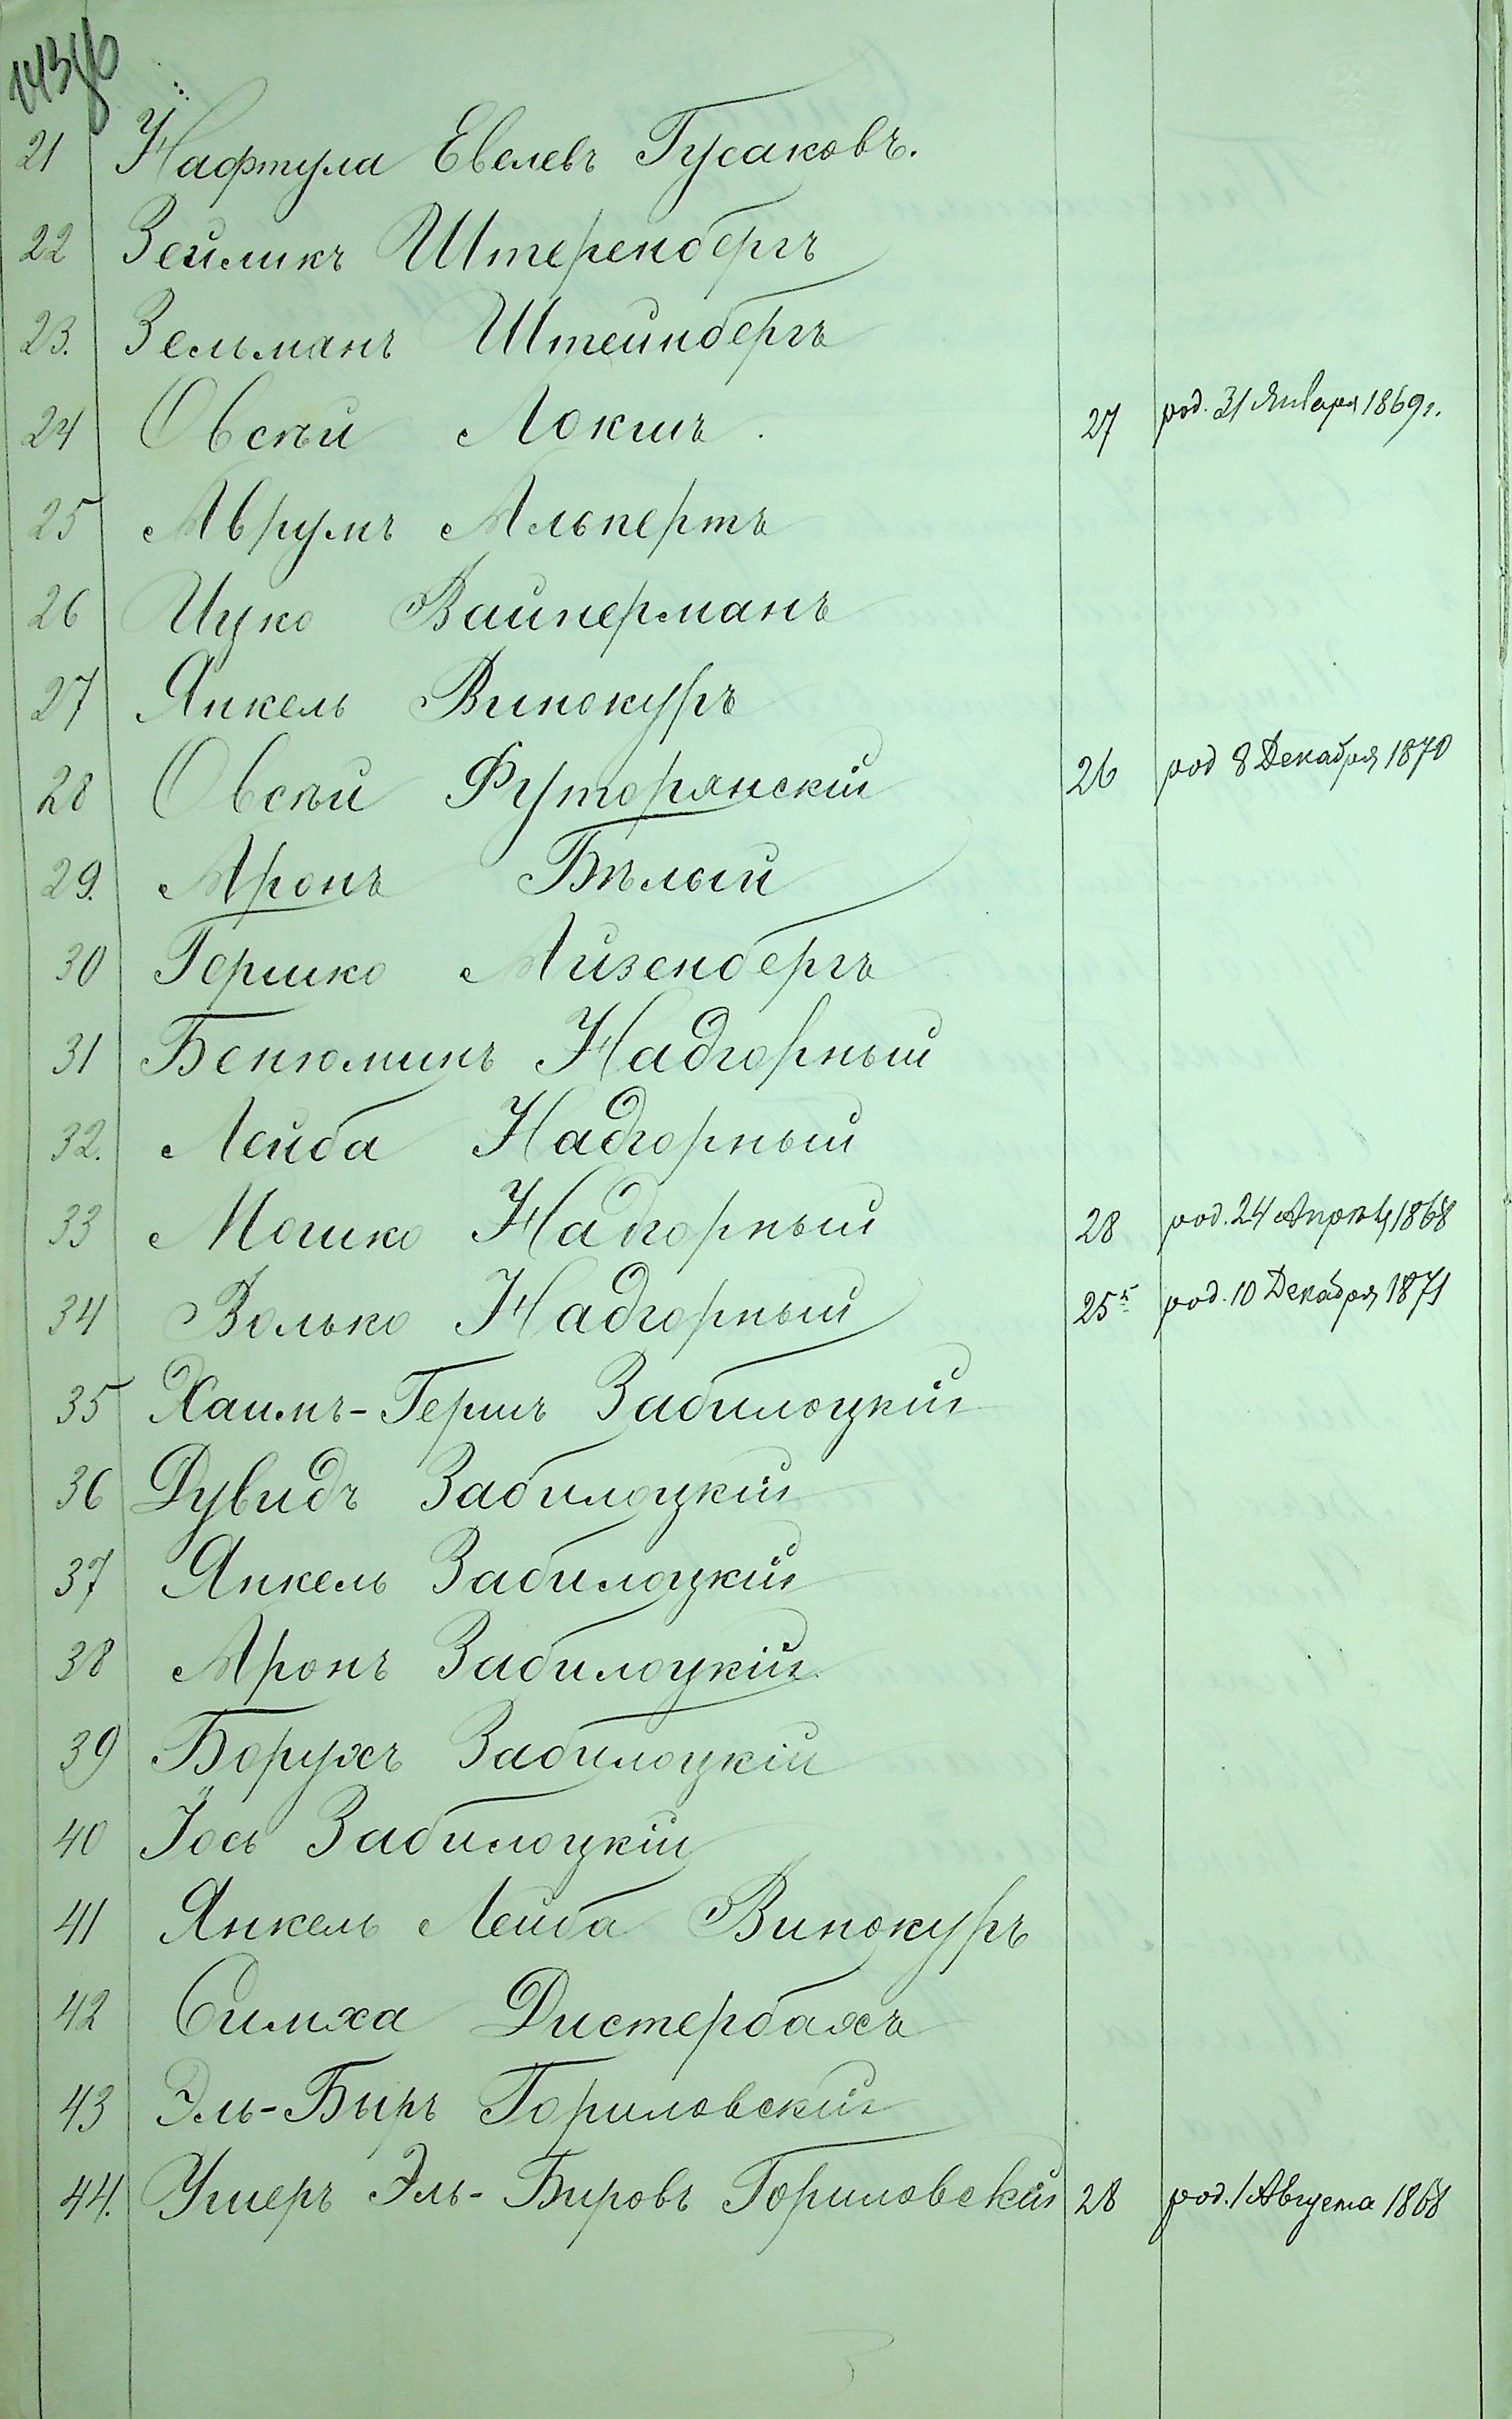 143об
21 Нафтула Евелевъ Гусаковъ.
22 Зейликъ Штеренбергъ
23. Зельманъ Штейнбергъ
24 Овсѣй Локшъ. 27 род. 31 Января 1869 г.
25 Аврумъ Альпертъ
26 Ицко Вайперманъ
27 Янкель Винокуръ
28 Овсѣй Футорянскій 26 род 8 Декабря 1870
29. Аронъ Бѣлый
30 Гершко Айзенбергъ
31 Бенюминъ Надгорный
32. Лейба Надгорный
33 Мошко Надгорный 28 род. 24 Апрѣля 1868
34 Волько Надгорный 25 род. 10 Декабря 1871
35 Хаимъ-Гершъ Забилоцкій
36 Дувидъ Забилоцкій
37 Янкель Забилоцкій
38 Аронъ Забилоцкій
39 Борухъ Забилоцкій
40 Іось Забилоцкій
41 Янкель Лейба Винокуръ
42 Симха Дистербахъ
43 Эль-Биръ Гориловскій
44. Ушеръ Эль-Бировъ Гориловскій 28 род. 1 Августа 1868